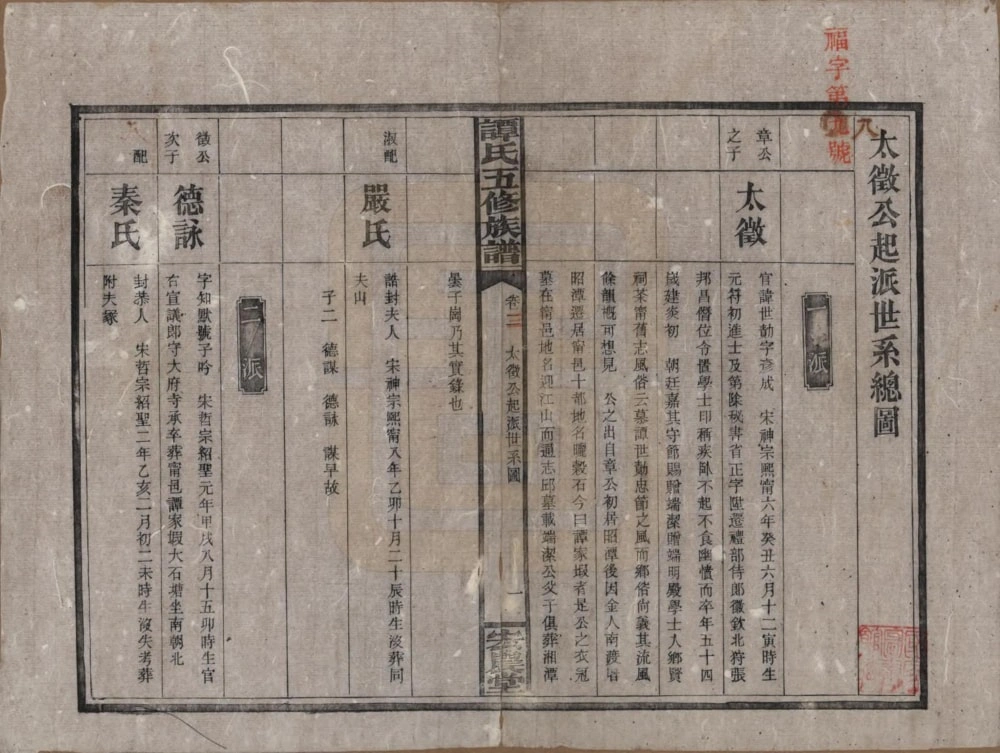 福字第九號
太徵公起派世系總圖
一派
章公之子
太徵
官諱世勣字彥成 宋神宗熙甯六年癸丑六月十二寅時生
元符初進士及第除秘書省正字陞遷禮部侍郎徽欽北狩張
邦昌僭位令置學士印稱疾臥不起不食幽憤而卒年五十四
歲建炎初 朝廷嘉其守節賜贈端潔贈端明殿學士入鄉賢
祠案甯舊志風俗云慕譚世勣忠節之風而鄉俗尚義其流風
餘韻概可想見 公之出自章公初居昭潭後因金人南渡
昭潭遷居甯邑十都地名曬穀石今曰譚家塅者是公之衣冠
墓在甯邑地名迎江山而通志邱墓載端潔公父子俱葬湘潭
譚氏五修族譜
卷三
太徵公起派世系圖
一
堂
曇子崗乃其實錄也
淑配
嚴氏
誥封夫人 宋神宗熙甯八年乙卯十月二十辰時生歿葬同
夫山
子二 德謀 德詠 謀早故
二派
徵公次子
德詠
字知默號子吟 宋哲宗紹聖元年甲戌八月十五卯時生官
右宣議郎守大府寺承卒葬甯邑譚家塅大石塘坐南朝北
配
秦氏
封恭人 宋哲宗紹聖二年乙亥二月初二未時生歿失考葬
附夫塚